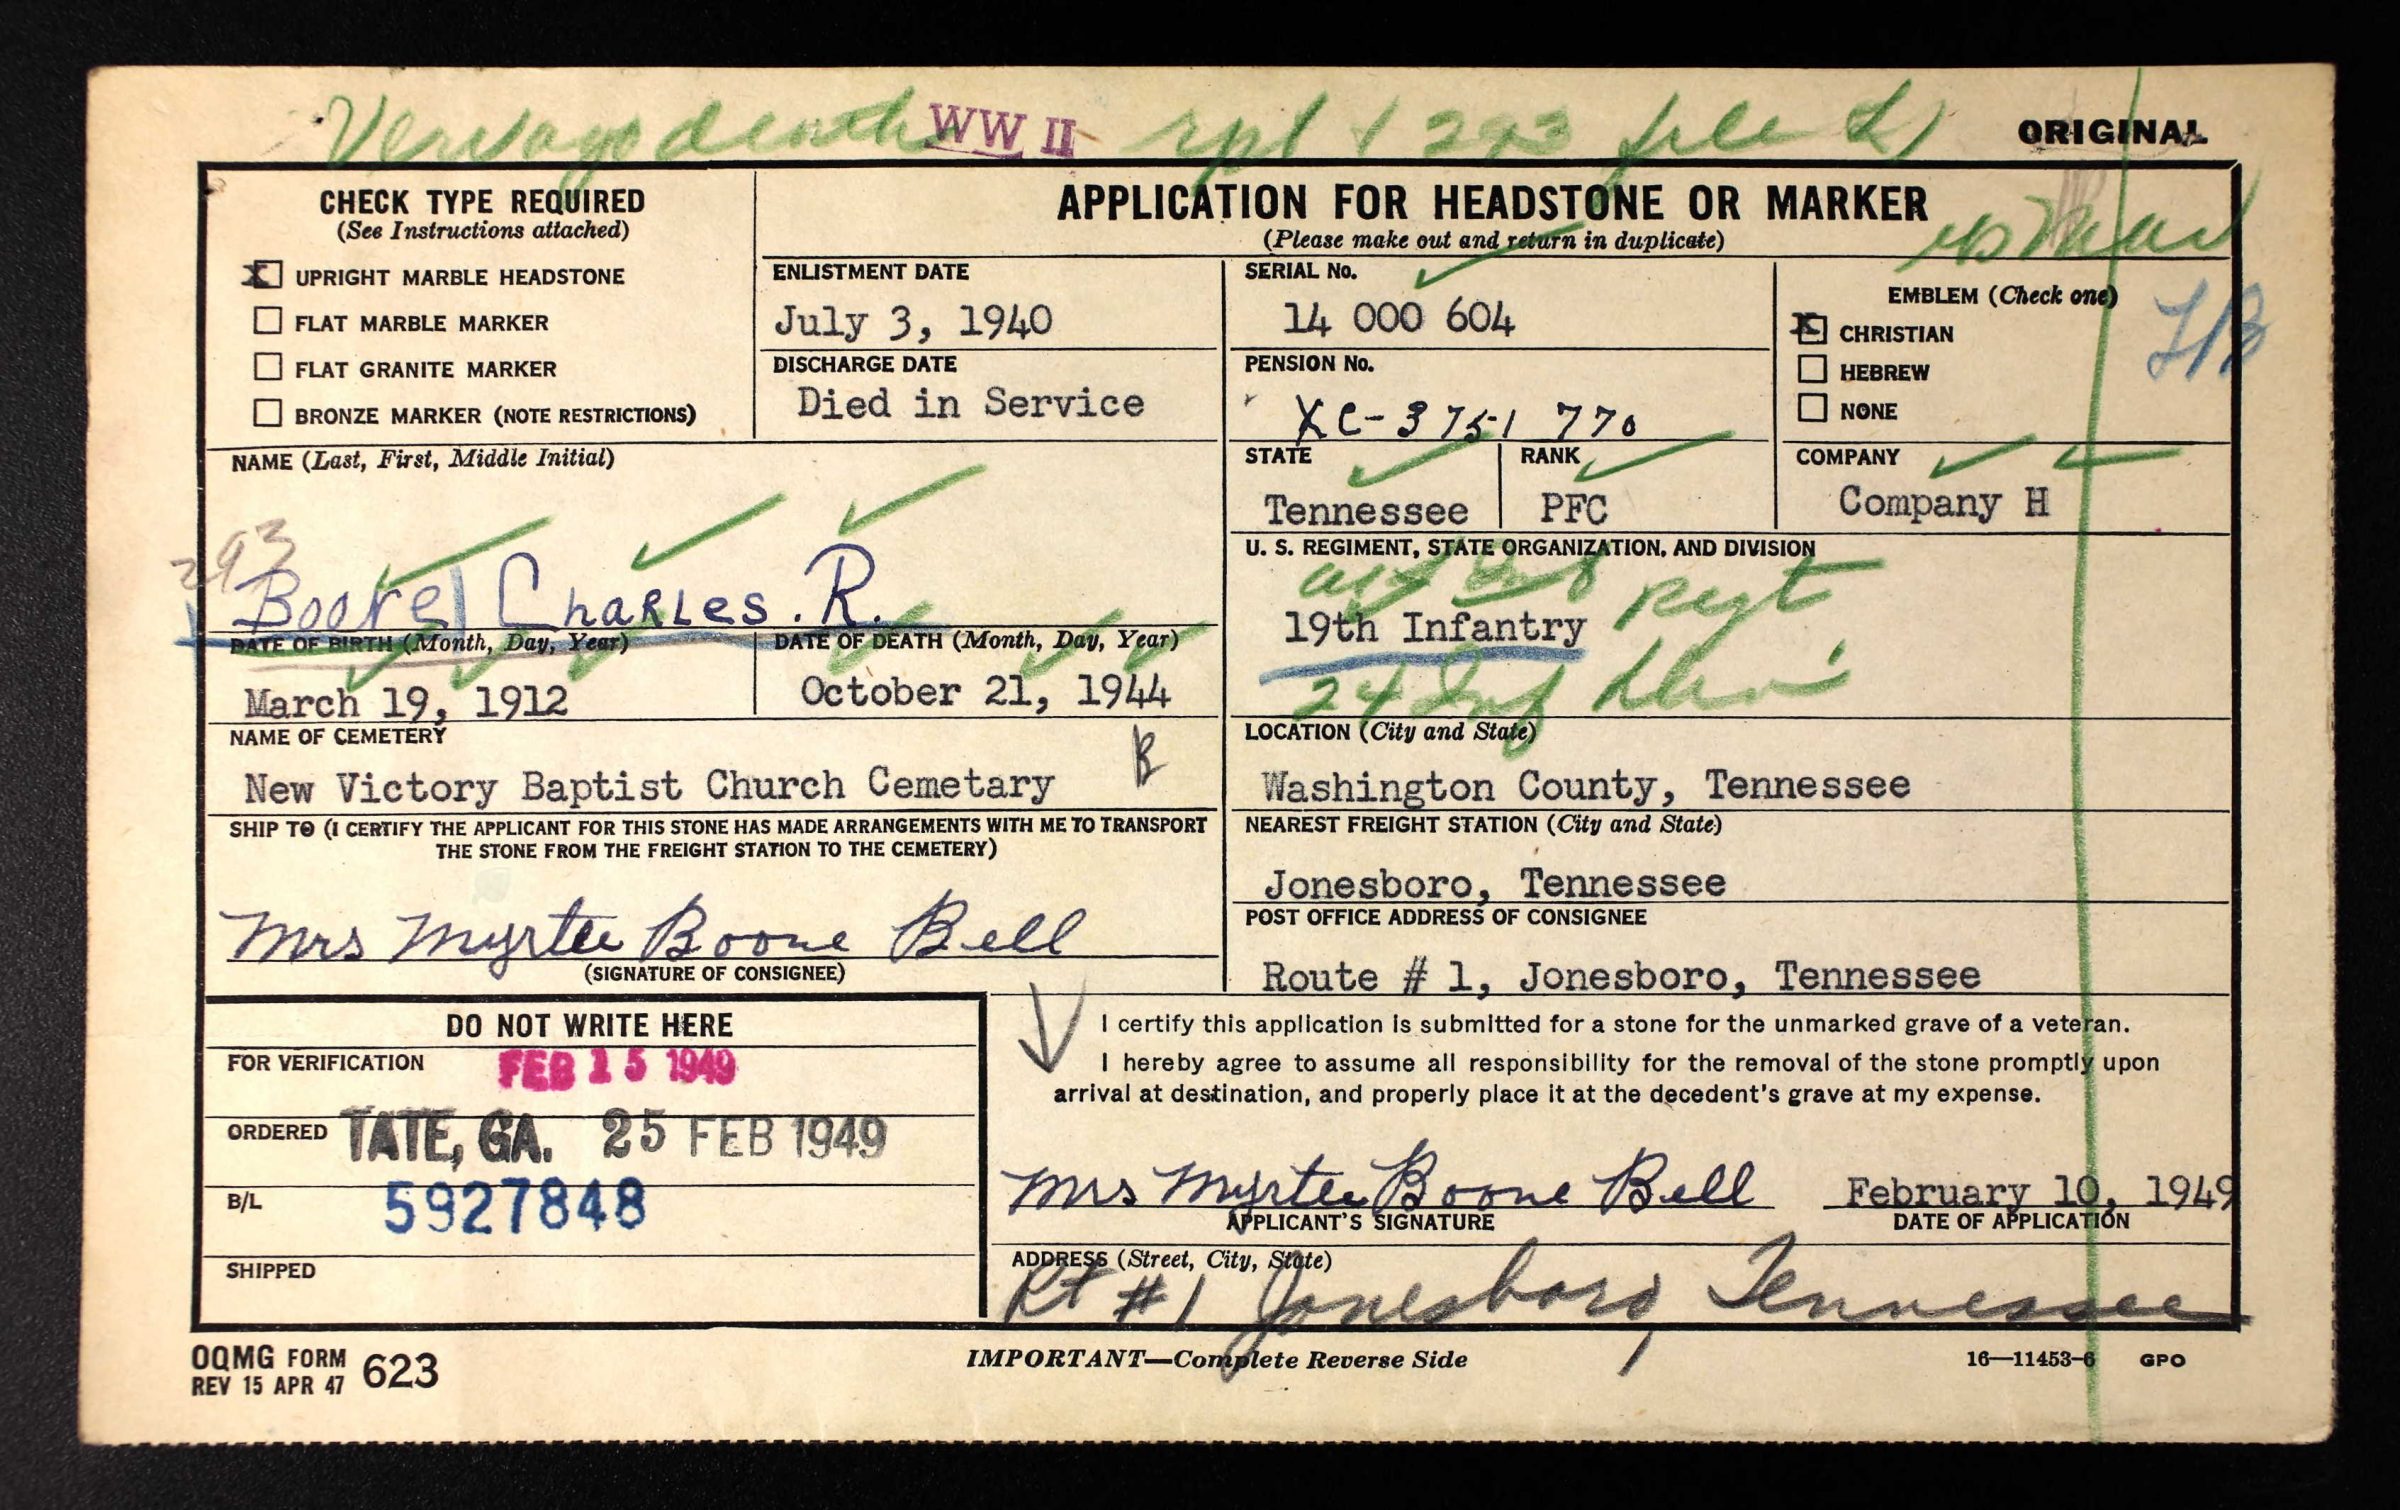 death WW II rpt & 293 file
ORIGINAL
CHECK TYPE REQUIRED
(See Instructions attached)
X UPRIGHT MARBLE HEADSTONE
FLAT MARBLE MARKER
FLAT GRANITE MARKER
BRONZE MARKER (NOTE RESTRICTIONS)
APPLICATION FOR HEADSTONE OR MARKER
(Please make out and return in duplicate)
ENLISTMENT DATE
July 3, 1940
DISCHARGE DATE
Died in Service
SERIAL No.
14 000 604
PENSION No.
XC-3751 770
EMBLEM (Check one)
X CHRISTIAN
HEBREW
NONE
NAME (Last, First, Middle Initial)
293
Boone Charles. R.
STATE
Tennessee
RANK
PFC
COMPANY
Company H
U. S. REGIMENT, STATE ORGANIZATION, AND DIVISION
Inf Regt
19th Infantry
24 Inf Div
DATE OF BIRTH (Month, Day, Year)
March 19, 1912
DATE OF DEATH (Month, Day, Year)
October 21, 1944
NAME OF CEMETERY
New Victory Baptist Church Cemetary
B
LOCATION (City and State)
Washington County, Tennessee
SHIP TO (I CERTIFY THE APPLICANT FOR THIS STONE HAS MADE ARRANGEMENTS WITH ME TO TRANSPORT
THE STONE FROM THE FREIGHT STATION TO THE CEMETERY)
Mrs Myrtee Boone Bell
(SIGNATURE OF CONSIGNEE)
NEAREST FREIGHT STATION (City and State)
Jonesboro, Tennessee
POST OFFICE ADDRESS OF CONSIGNEE
Route # 1, Jonesboro, Tennessee
DO NOT WRITE HERE
FOR VERIFICATION FEB 15 1949
ORDERED TATE, GA. 25 FEB 1949
B/L 5927848
SHIPPED
I certify this application is submitted for a stone for the unmarked grave of a veteran.
I hereby agree to assume all responsibility for the removal of the stone promptly upon
arrival at destination, and properly place it at the decedent's grave at my expense.
Mrs Myrtee Boone Bell February 10, 1949
APPLICANT'S SIGNATURE DATE OF APPLICATION
ADDRESS (Street, City, State)
Rt # 1 Jonesboro, Tennessee
OQMG FORM 623
REV 15 APR 47
IMPORTANT—Complete Reverse Side
16—11453-6 GPO